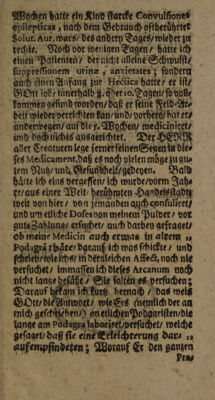 Wochen hatte ein Kind starcke Convulsiones
epilepticas, nach dem Gebrauch offtberührter
Solut. Aur. wars / des andern Tages / wieder zu
rechte. Noch vor wenigen Tagen / hatte ich
einen Patienten / der nicht alleine Schwulst /
suppressionem urinæ, anxietates; sondern
auch einen Anfang zur Hectica hatte / er ist /
GOtt lob / innerhalb 8. oder 10. Tagen / so voll-
kommen gesund worden / daß er seine Feld-Ar-
beit wieder verrichten kan / und vorhero / hat er
anderwegen / auf die 7. Wochen / mediciniret /
und doch nichts ausgerichtet. Der HERR
aller Creaturen lege ferner seinen Segen in die-
ses Medicament, daß es noch vielen möge zu gu-
tem Nutz und Gesundheit / gedeyen. Bald
hätte ich eins vergessen / ich wurde / vorm Jah-
re / aus einer Welt-berühmten Handelsstadt /
weit von hier / von jemanden auch consuliret /
und um etliche Doses von meinem Pulver / vor
gute Zahlung / ersuchet / auch darbey gefraget /
ob meine Medicin auch etwas in altem
Podagra thäte; darauf ich was schickte / und
schrieb / wie ich es / in deraleichen Affect, noch nie
versuchet / immassen ich dieses Arcanum noch
nicht lange besässe / Sie solten es versuchen;
Darauf bekam ich kurtz hernach / das weiß
GOtt / die Antwort / wie Ers (nemlich der an
mich geschrieben) an etlichen Podagristen / die
lange am Podagra laboriret / versuchet / welche
gesaget / daß sie eine Erleichterung dar-
auf empfindeten; Worauf Er den gantzen
Pro-